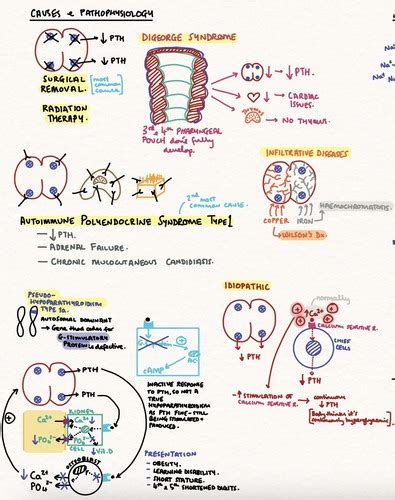 CAUSES & PATHOPHYSIOLOGY
↓ PTH
SURGICAL
REMOVAL.
most
common
cause
RADIATION
THERAPY.
DIGEORGE SYNDROME
3rd & 4th PHARYNGEAL
POUCH don't fully
develop.
↓ PTH.
↓ CARDIAC
ISSUES.
→ NO THYMUS.
INFILTRATIVE DISEASES
COPPER
IRON
→ HAEMOCHROMATOSIS.
→ WILSON'S DX.
2nd most
common cause.
AUTOIMMUNE POLYENDOCRINE SYNDROME TYPE 1
— ↓ PTH.
— ADRENAL FAILURE.
— CHRONIC MUCOCUTANEOUS CANDIDIASIS.
PSEUDO-
HYPOPARATHYROIDISM
TYPE 1a.
AUTOSOMAL DOMINANT
→ Gene that codes for
G-STIMULATORY
PROTEIN is defective.
AC
cAMP
INACTIVE RESPONSE
TO PTH, SO NOT A
TRUE
HYPOPARATHYROIDISM
AS PTH FINE - STILL
BEING STIMULATED +
PRODUCED.
PTH
PTH
KIDNEY
Ca²⁺
Ca²⁺
PO₄³⁻
PO₄³⁻
CELL
↓ Vit. D
OSTEOBLAST
↓ Ca²⁺
PO₄
PRESENTATION
- OBESITY.
- LEARNING DISABILITY.
- SHORT STATURE.
- 4th & 5th SHORTENED DIGITS.
IDIOPATHIC
normally
↑ Ca²⁺
CALCIUM SENSITIVE R.
CHIEF
CELLS
↓
PTH
↓
PTH
- ↑ STIMULATION OF
CALCIUM SENSITIVE R. → continuous
↓ PTH
[Body thinks it's
continuously hypercalcaemic]